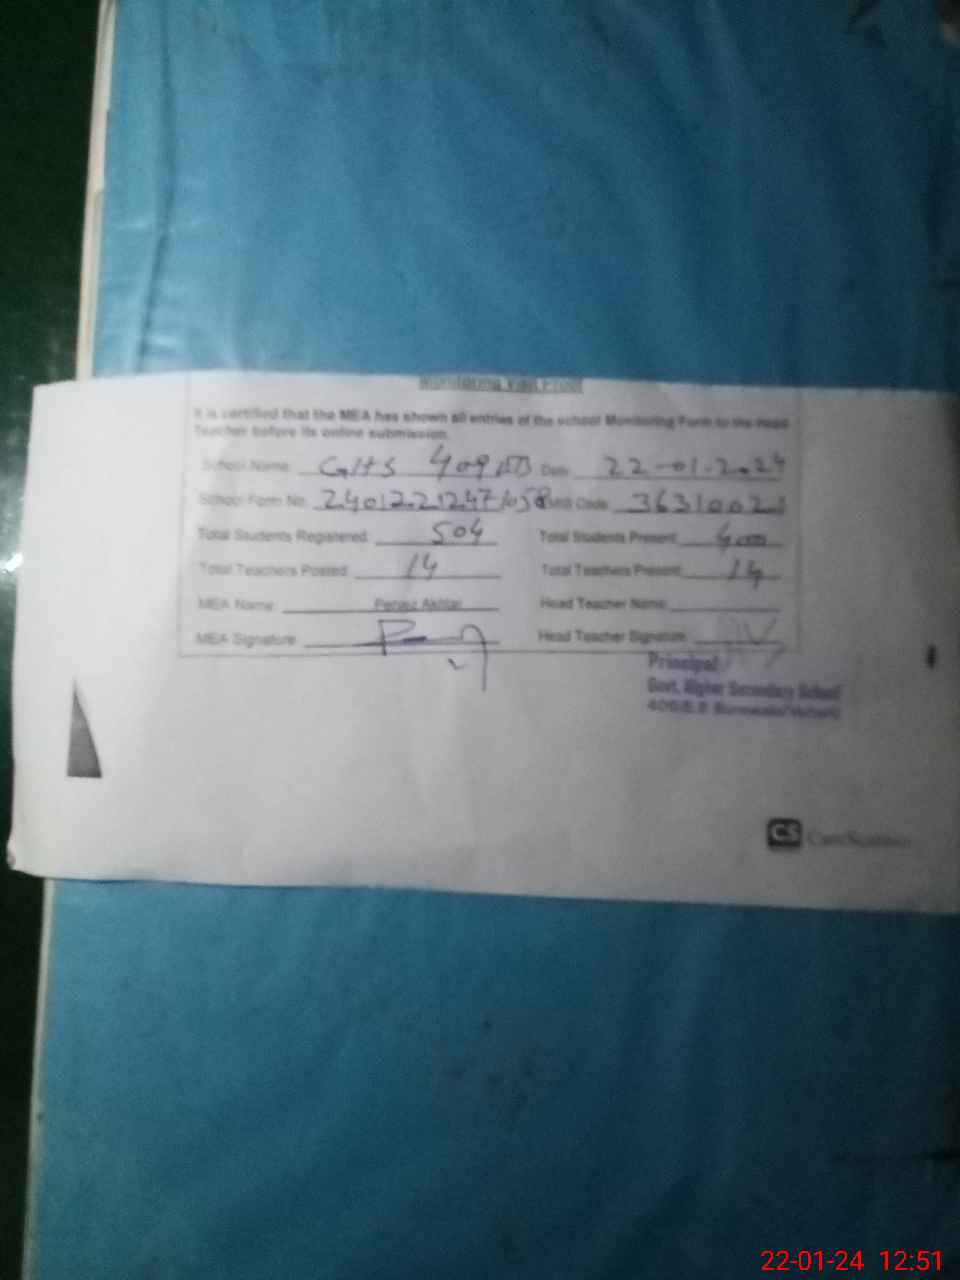 Monitoring Visit Proof
It is certified that the MEA has shown all entries of the school Monitoring Form to the Head
Teacher before its online submission.
School Name: GHS 409 EB Date: 22-01-2024
School Form No: Code: 36310021
Total Students Registered: 504 Total Students Present: 400
Total Teachers Posted: 14 Total Teachers Present: 14
MEA Name: Pervez Akhtar Head Teacher Name:
MEA Signature: Head Teacher Signature:
Principal
Govt. Higher Secondary School
409/E.B Burewala(Vehari)
CS CamScanner
22-01-24 12:51